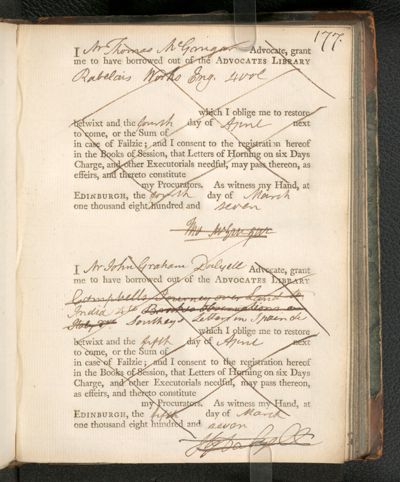 177.
I Mr Thomas McGrugar Advocate, grant
me to have borrowed out of the ADVOCATES LIBRARY
Rabelais Works Eng. 4 vols
which I oblige me to restore
betwixt and the fourth day of April next
to come, or the Sum of
in case of Failzie; and I consent to the registration hereof
in the Books of Session, that Letters of Horning on six Days
Charge, and other Executorials needful, may pass thereon, as
effeirs, and thereto constitute
my Procurators. As witness my Hand, at
EDINBURGH, the fourth day of March
one thousand eight hundred and seven
Tho McGrugar
I Mr John Graham Dalyell Advocate, grant
me to have borrowed out of the ADVOCATES LIBRARY
Campbells Journey over Land to
India 4to Observations on
Italy Southeys Letters in Spain &c
which I oblige me to restore
betwixt and the fifth day of April next
to come, or the Sum of
in case of Failzie; and I consent to the registration hereof
in the Books of Session, that Letters of Horning on six Days
Charge, and other Executorials needful, may pass thereon,
as effeirs, and thereto constitute
my Procurators. As witness my Hand, at
EDINBURGH, the fifth day of March
one thousand eight hundred and seven